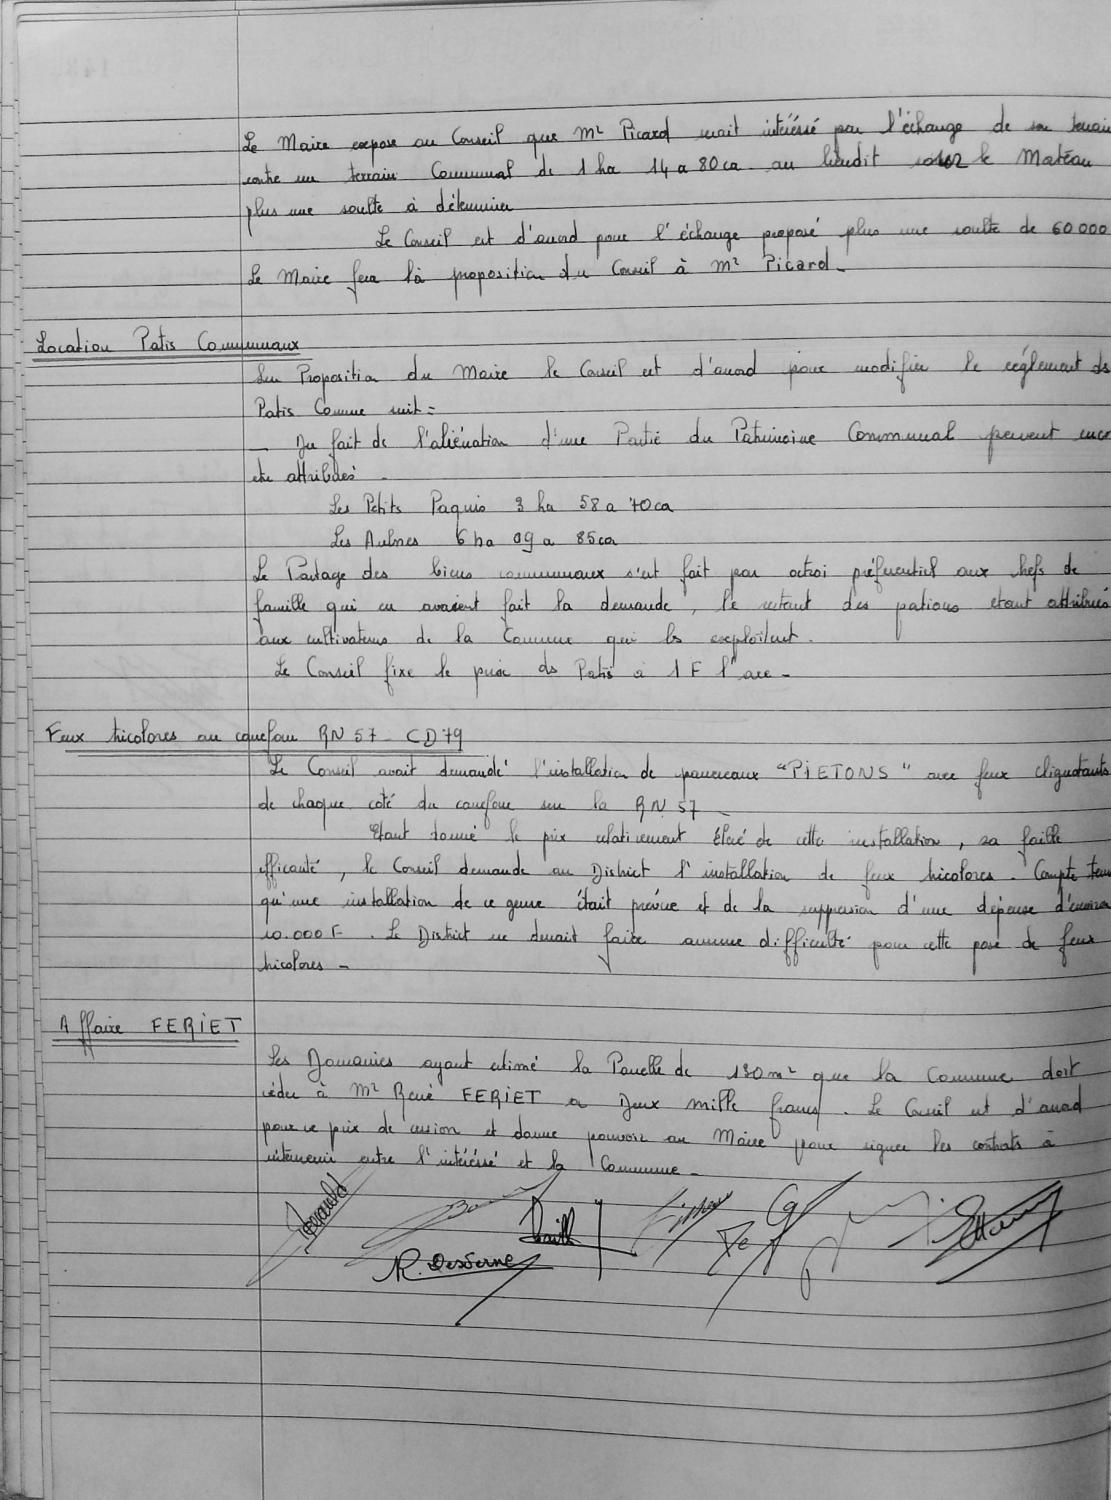 Le Maire expose au Conseil que Mr Picard serait intéréssé par l'échange de son terrain
contre un terrain Communal de 1 ha 14 a 80 ca au lieudit sous le Matéau
plus une soulte à déterminer
Le Conseil est d'accord pour l'échange proposé plus une soulte de 60 000
Le Maire fera la proposition du Conseil à Mr Picard.
Location Patis Communaux
Sur Proposition du Maire le Conseil est d'accord pour modifier le réglement ds
Patis Comme suit =
_ Du fait de l'aliénation d'une Partie du Patrimoine Communal peuvent
etre attribués.
Les Petits Paquis 3 ha 58 a 70 ca
Les Aulnes 6 ha 09 a 85 ca
Le Partage des biens communaux s'est fait par octroi préferentiel aux chefs de
famille qui en avaient fait la demande, le restant des patious etant attribués
aux cultivateurs de la Commune qui ls exploitent.
Le Conseil fixe le prix ds Patis à 1 F l'are -
Feux tricolores au carrefour RN 57 - CD 79
Le Conseil avait demandé l'installation de panneaux "PIETONS" avec feux clignotants
de chaque coté du carrefour sur la RN 57
Etant donné le prix relativement élevé de cette installation, sa faible
efficacité, le Conseil demande au District l'installation de feux tricolores. Compte tenu
qu'une installation de ce genre était prévue et de la suppression d'une dépense d'environ
10.000 F. Le District ne devrait faire aucune difficulté pour cette pose de feux
tricolores -
Affaire FERIET
Les Domaines ayant estimé la Parcelle de 130 m² que la Commune doit
céder à Mr René FERIET a Deux mille francs. Le Conseil est d'accord
pour ce prix de cession et donne pouvoir au Maire pour signer les contrats à
intervenir entre l'intéréssé et la Commune -
R. Desserne